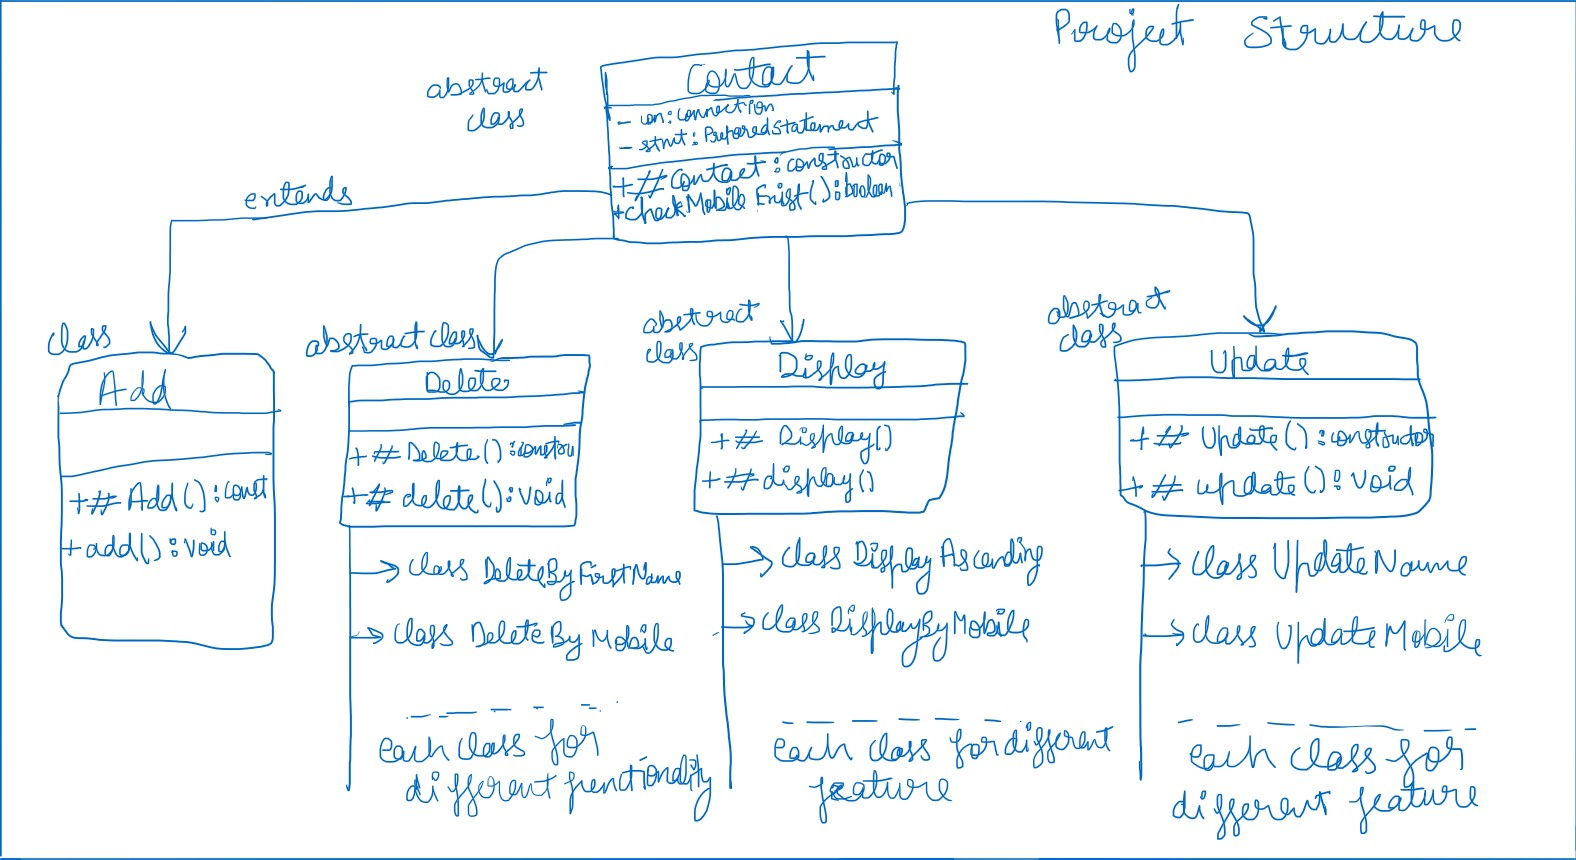 Project Structure
abstract
class
Contact
- con: connection
- stmt: PreparedStatement
+ # Contact : constructor
+ checkMobile Exist() : boolean
extends
class
Add
+ # Add() : const
+ add() : void
abstract class
Delete
+ # Delete() : constru
+ # delete() : void
→ class DeleteByFirstName
→ class DeleteByMobile
each class for
different functionality
abstract
class
Display
+ # Display()
+ # display()
→ class Display Ascending
→ class DisplayByMobile
each class for different
feature
abstract
class
Update
+ # Update() : constructor
+ # update() : void
→ class UpdateName
→ class UpdateMobile
each class for
different feature